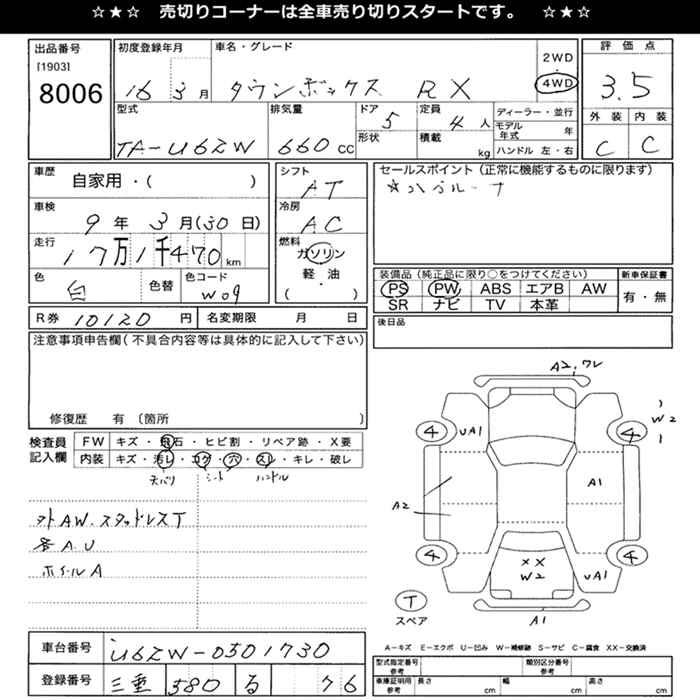 ☆★☆ 売切りコーナーは全車売り切りスタートです。 ☆★☆
出品番号
[1903]
8006
初度登録年月
16 3月
車名・グレード
タウンボックス RX
2WD
・
4WD
評価点
3.5
外装 内装
C C
型式
TA-U62W
排気量
660 cc
ドア 5
形状
定員 4人
積載 kg
ディーラー・並行
モデル年式 年
ハンドル 左・右
車歴 自家用・( )
車検 9年 3月(30日)
走行 17万1千470km
色 白
色替
色コード W09
シフト AT
冷房 AC
燃料
ガソリン
軽・油
( )
セールスポイント(正常に機能するものに限ります)
装備品(純正品に限り○をつけてください)
PS PW ABS エアB AW
SR ナビ TV 本革
新車保証書
有・無
R券 10120円
名変期限 月 日
後日品
注意事項申告欄(不具合内容等は具体的に記入して下さい)
修復歴 有 〔箇所 〕
検査員記入欄
FW キズ・飛石・ヒビ割・リペア跡・X要
内装 キズ・汚レ・コゲ・穴・スレ・キレ・破レ
天バリ シート ハンドル
外AW.スタッドレスT
各A.U
ホイールA
A2.ワレ
W2
4 UA1 4
A2
A1
4 4
XX
W2
UA1
T
スペア
A1
車台番号 U62W-0501730
登録番号 三重 580 る 76
A-キズ E-エクボ U-凹み W-補修跡 S-サビ C-腐食 XX-交換済
型式指定番号
参考
類別区分番号
参考
車庫証明用
参考
長さ cm 幅 cm 高さ cm